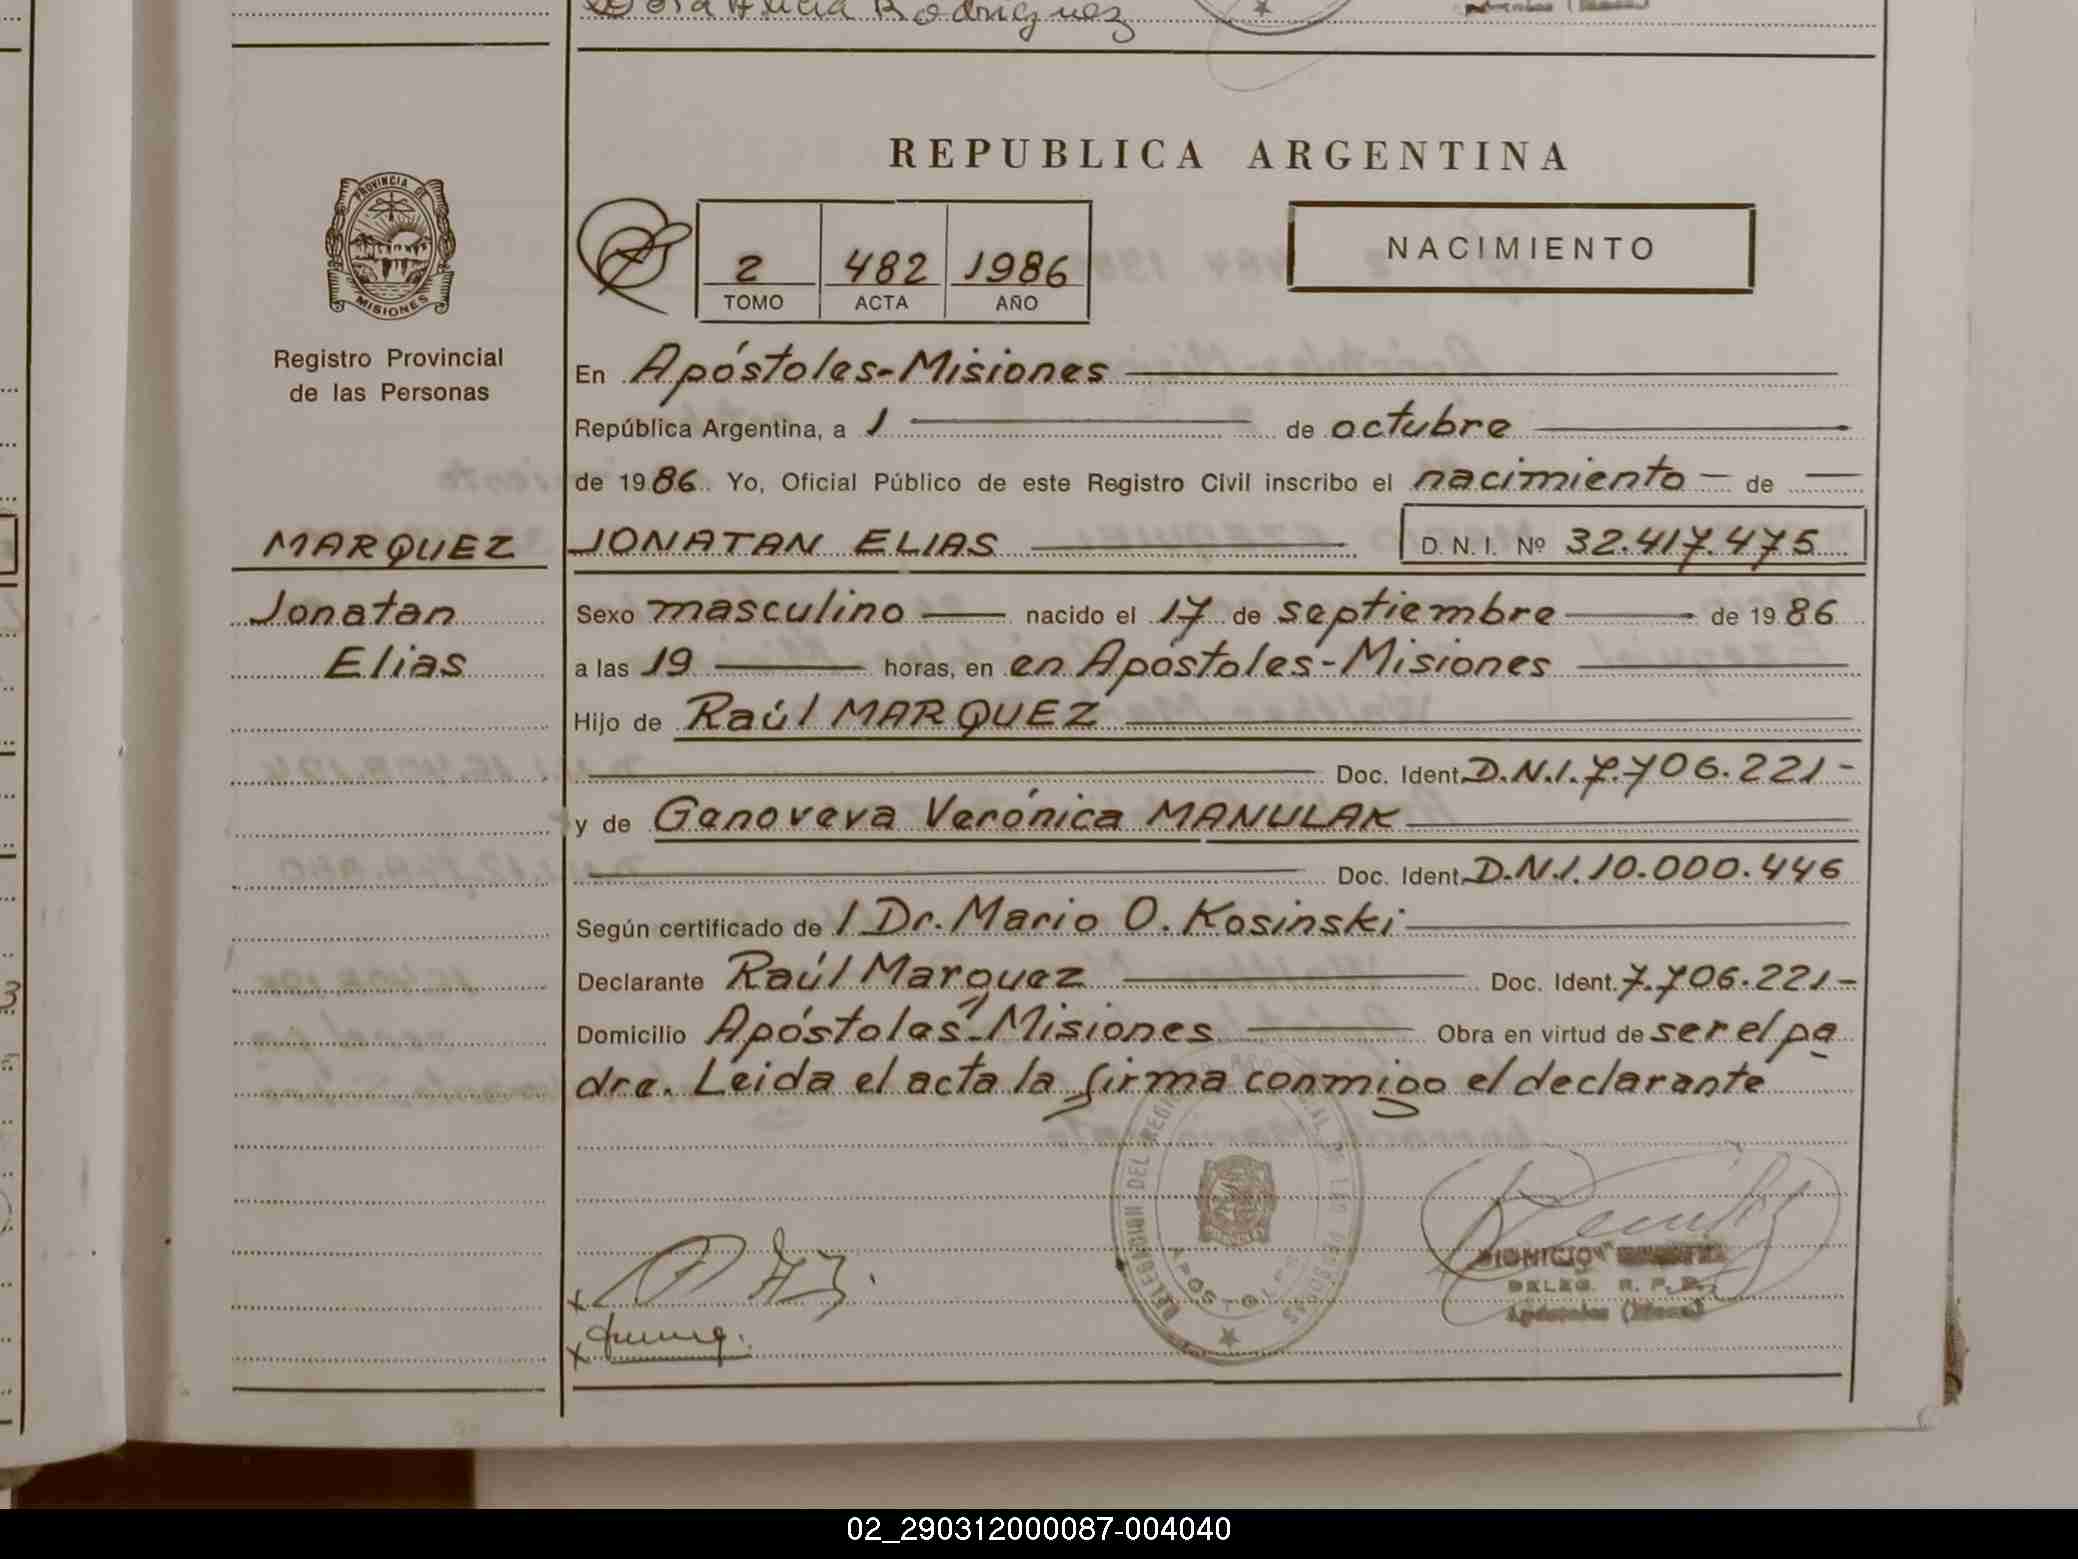 Dora Alicia Rodriguez
REPUBLICA ARGENTINA
PROVINCIA DE
MISIONES
2 482 1986
TOMO ACTA AÑO
NACIMIENTO
Registro Provincial
de las Personas
En Apóstoles-Misiones
República Argentina, a 1 de octubre
de 1986 Yo, Oficial Público de este Registro Civil inscribo el nacimiento de
MARQUEZ JONATAN ELIAS D. N. I. Nº 32.417.475
Jonatan Sexo masculino nacido el 17 de septiembre de 1986
Elias a las 19 horas, en en Apóstoles-Misiones
Hijo de Raúl MARQUEZ
Doc. Ident. D.N.I. 7.706.221-
y de Genoveva Verónica MANULAK
Doc. Ident. D.N.I. 10.000.446
Según certificado de / Dr. Mario O. Kosinski
Declarante Raúl Marquez Doc. Ident. 7.706.221-
Domicilio Apóstoles-Misiones Obra en virtud de ser el pa
dre. Leida el acta la firma conmigo el declarante
DELEGACION DEL
APOSTOLES
DIONICIO
DELEG. R. P. P.
Apóstoles
02_290312000087-004040